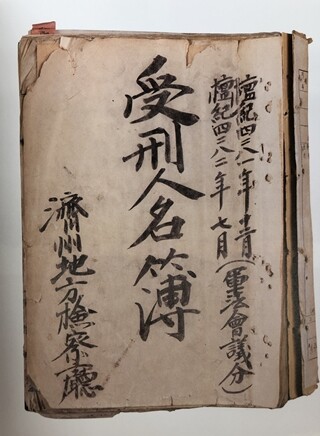 檀紀四二八一年十二月
檀紀四二八二年七月
(軍法會議分)
受刑人名簿
濟州地方檢察廳